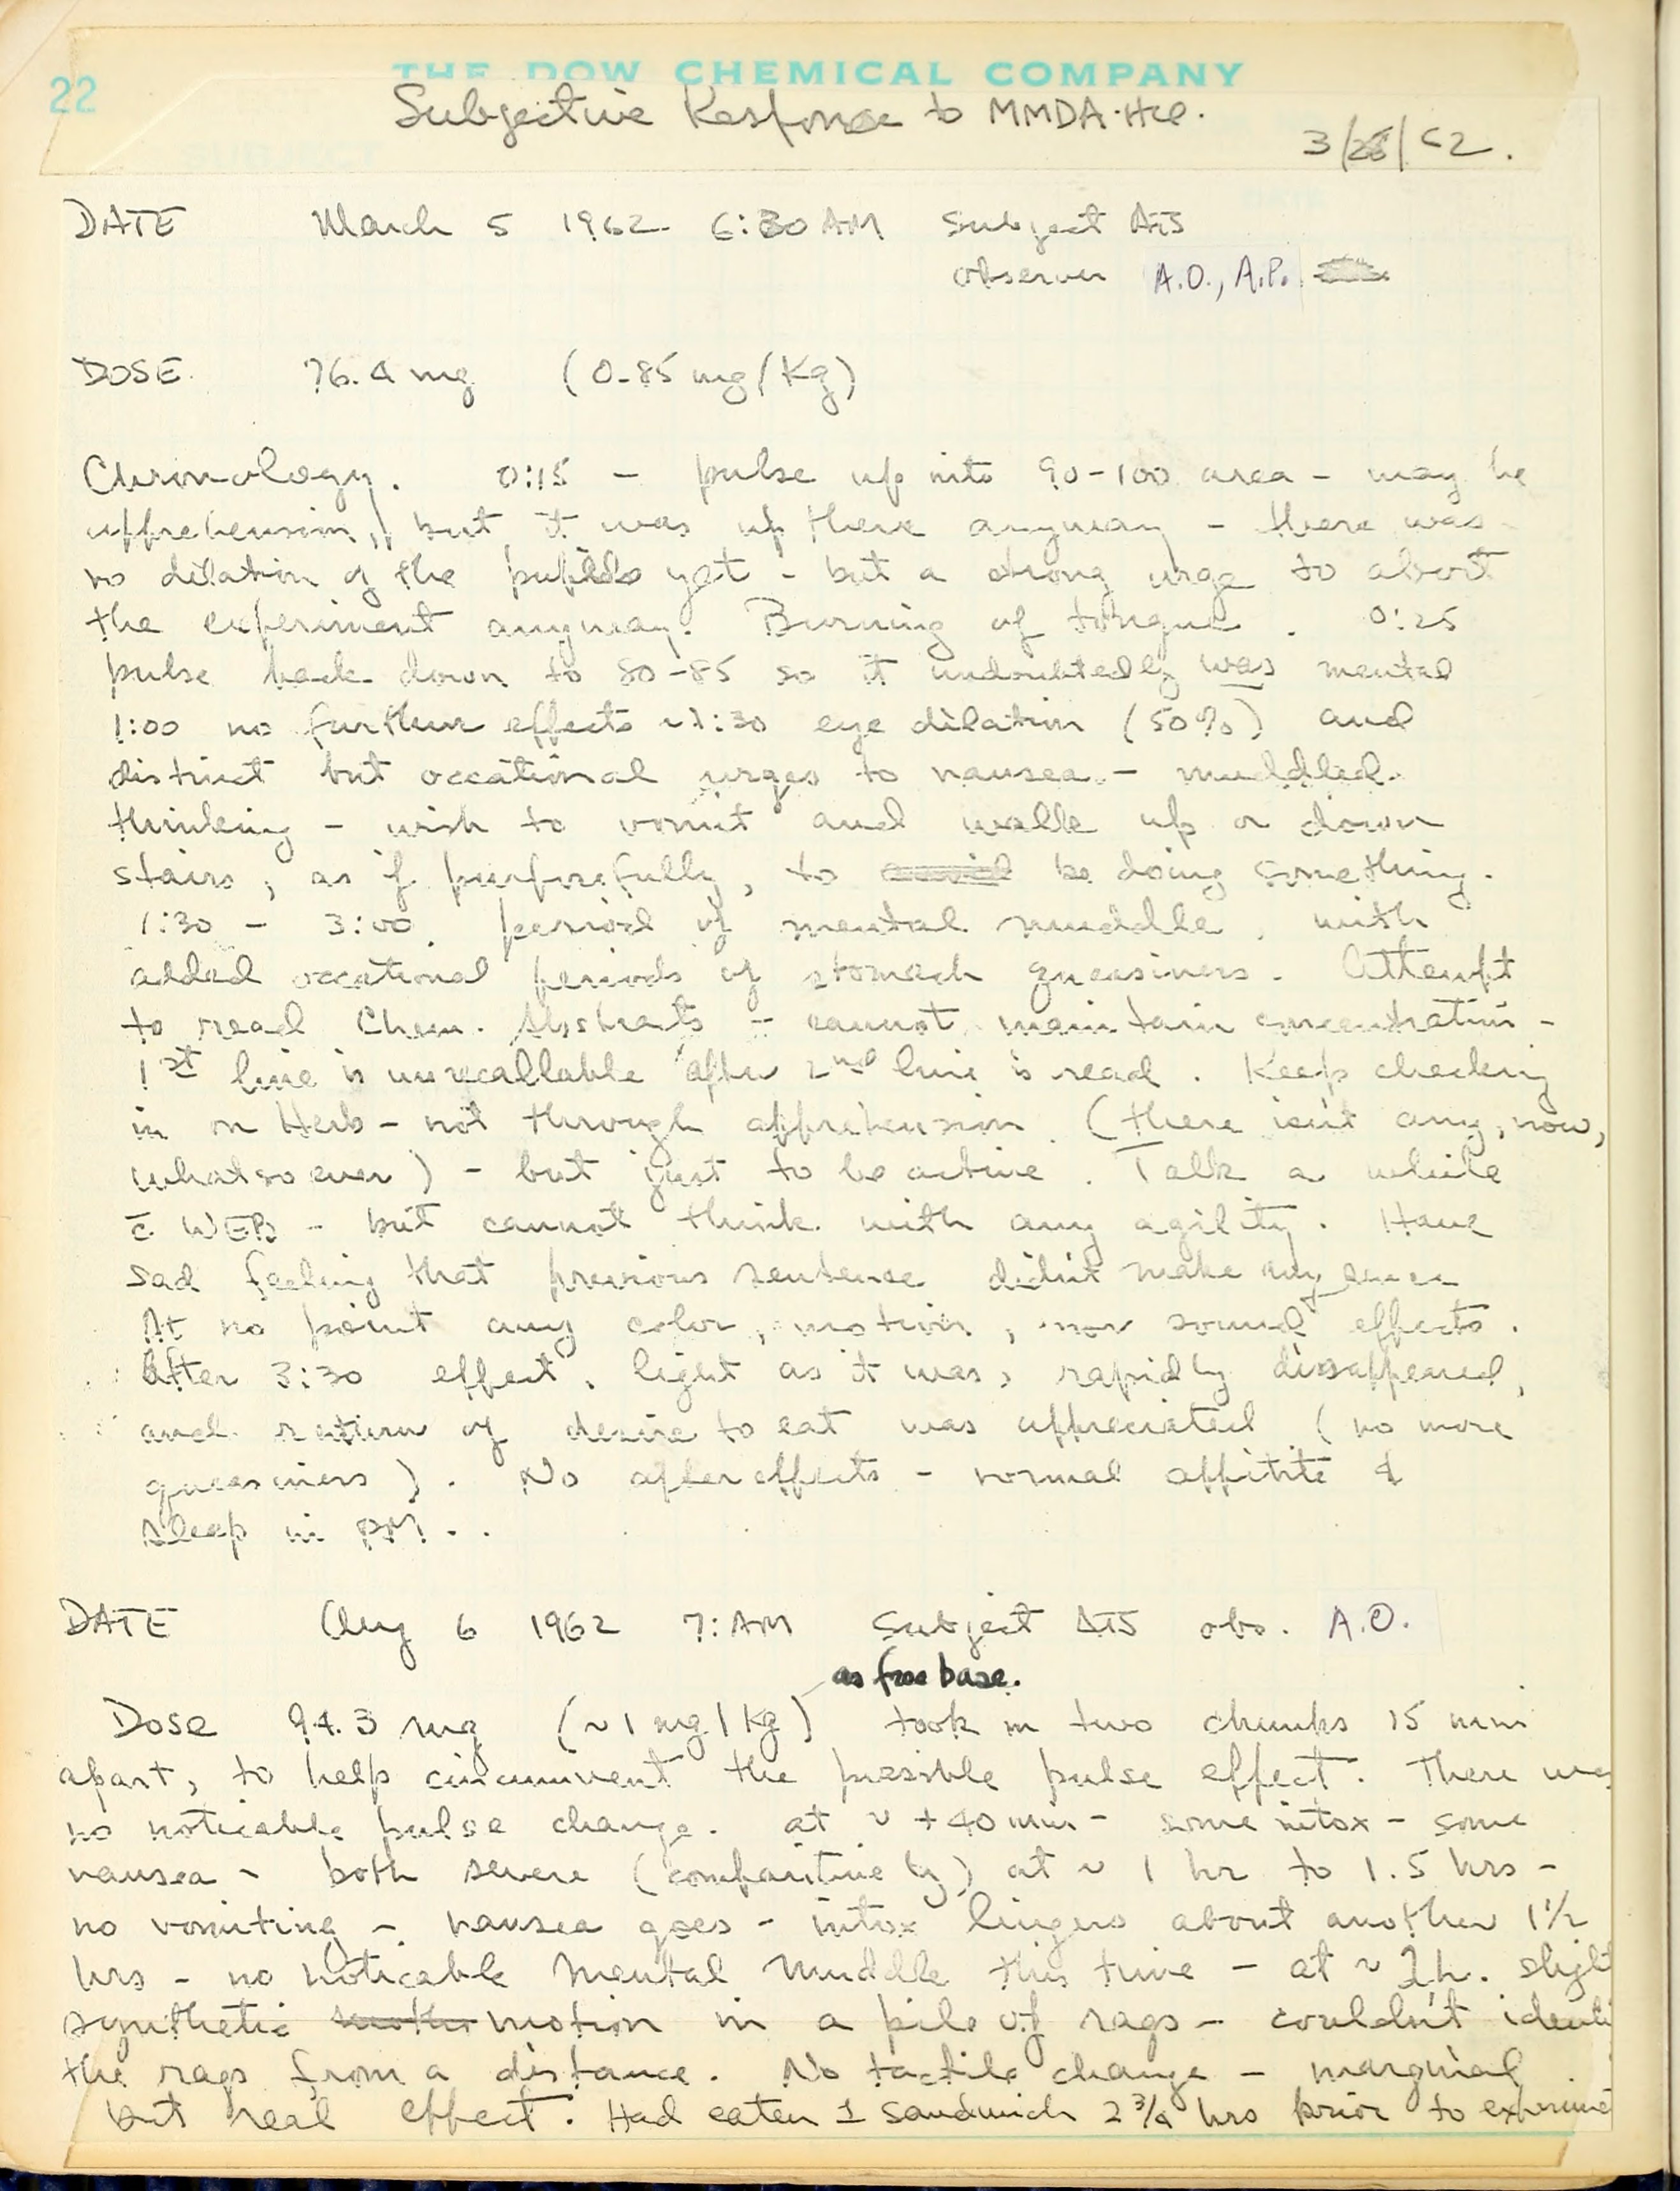 22
THE DOW CHEMICAL COMPANY
Subjective Response to MMDA·HCl.
SUBJECT
3/28/62.
DATE
DATE March 5 1962 6:30 AM Subject ATS
observer A.O., A.P.
DOSE 76.4 mg (0.85 mg/Kg)
Chronology. 0:15 – pulse up into 90-100 area – may be
apprehension, but it was up there anyway – there was
no dilation of the pupils yet – but a strong urge to abort
the experiment anyway. Burning of tongue. 0:25
pulse back down to 80-85 so it undoubtedly was mental
1:00 no further effects ~1:30 eye dilation (50%) and
distinct but occational urges to nausea – muddled
thinking – wish to vomit and walk up or down
stairs, as if purposefully, to be doing something.
1:30 – 3:00 period of mental muddle, with
added occational periods of stomach queasiness. Attempt
to read Chem. Abstracts – cannot maintain concentration –
1st line is unrecallable after 2nd line is read. Keep checking
in on Herb – not through apprehension (there isn't any, now,
whatsoever) – but just to be active. Talk a while
c̄ WEB – but cannot think with any agility. Have
sad feeling that previous sentence didn't make any sense
At no point any color, motion, nor sound effects.
After 3:30 effect, light as it was, rapidly disappeared,
and return of desire to eat was appreciated (no more
queasiness). No after effects – normal appitite &
sleep in PM.
DATE Aug 6 1962 7:AM Subject ATS obs. A.O.
as free base.
Dose 94.3 mg (~1 mg/Kg) took in two chunks 15 min
apart, to help circumvent the possible pulse effect. There was
no noticable pulse change. at ~ +40 min – some intox – some
nausea – both severe (comparitively) at ~ 1 hr to 1.5 hrs –
no vomiting – nausea goes – intox lingers about another 1½
hrs – no noticable mental muddle this time – at ~ 2h. slight
synthetic motion in a pile of rags – couldn't identi
the rags from a distance. No tactile change – marginal
but real effect. Had eaten 1 sandwich 2¾ hrs prior to experime